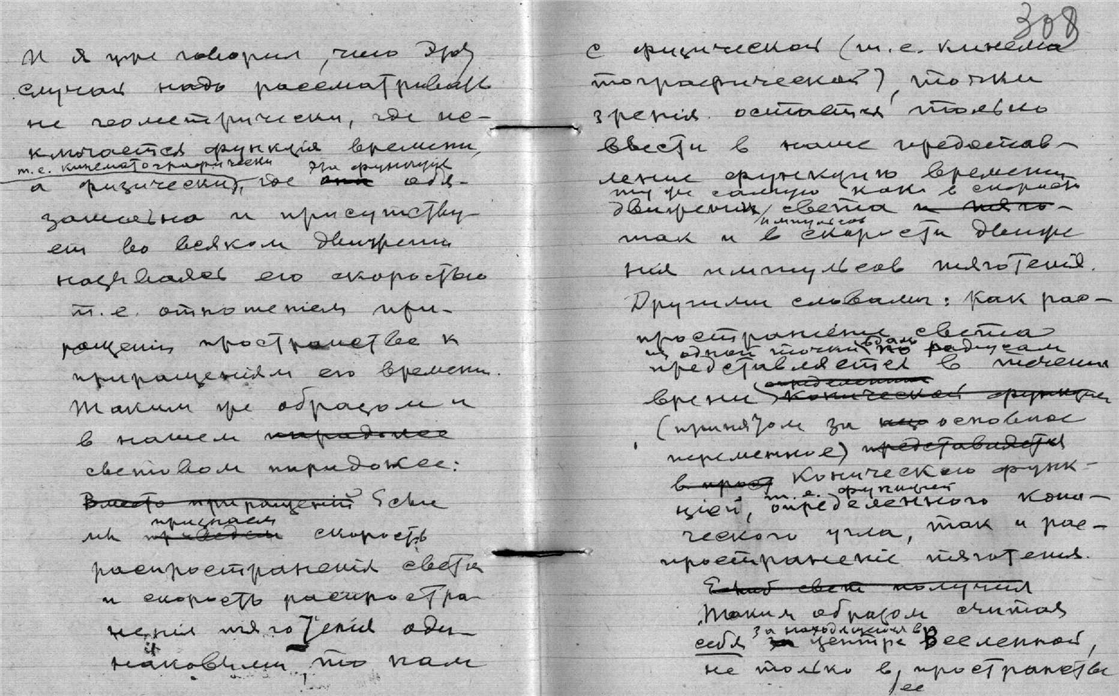 И я уже говорил, что этот
случай надо рассматривать
не геометрически, где ис-
ключается функція времени,
т.е. кинематографически эта функція
а физически, где она обя-
зательна и присутству-
ет во всяком движении
называясь его скоростью
т.е. отношеніем при-
ращенія пространства к
приращеніям его времени.
Таким же образом и
в нашем парадоксе
световом парадоксе:
Вместо приращеній Если
признаем
мы приведем скорость
распространенія света
и скорость распростра-
ненія тяготенія оди-
наковыми, то нам
308
с физической (т.е. кинема
тографической), точки
зренія остается только
ввести в наше представ-
леніе функцию времени
ту же самую как в скорости
движенія света и тяго-
импульсов
так и в скорости движе
нія импульсов тяготенія.
Другими словами: Как рас-
пространеніе света
из одной точки вдаль по радиусам
представляется в теченіи
определенной
времени конической функции
(принятом за основное
переменное) представляется
в прост Конической функ-
т.е. функцией
цией, определенного кони-
ческого угла, так и рас-
пространеніе тяготенія.
свет получил
Таким образом считая
за находящихся в
себя за центре Вселенной,
не только в пространстве
ее